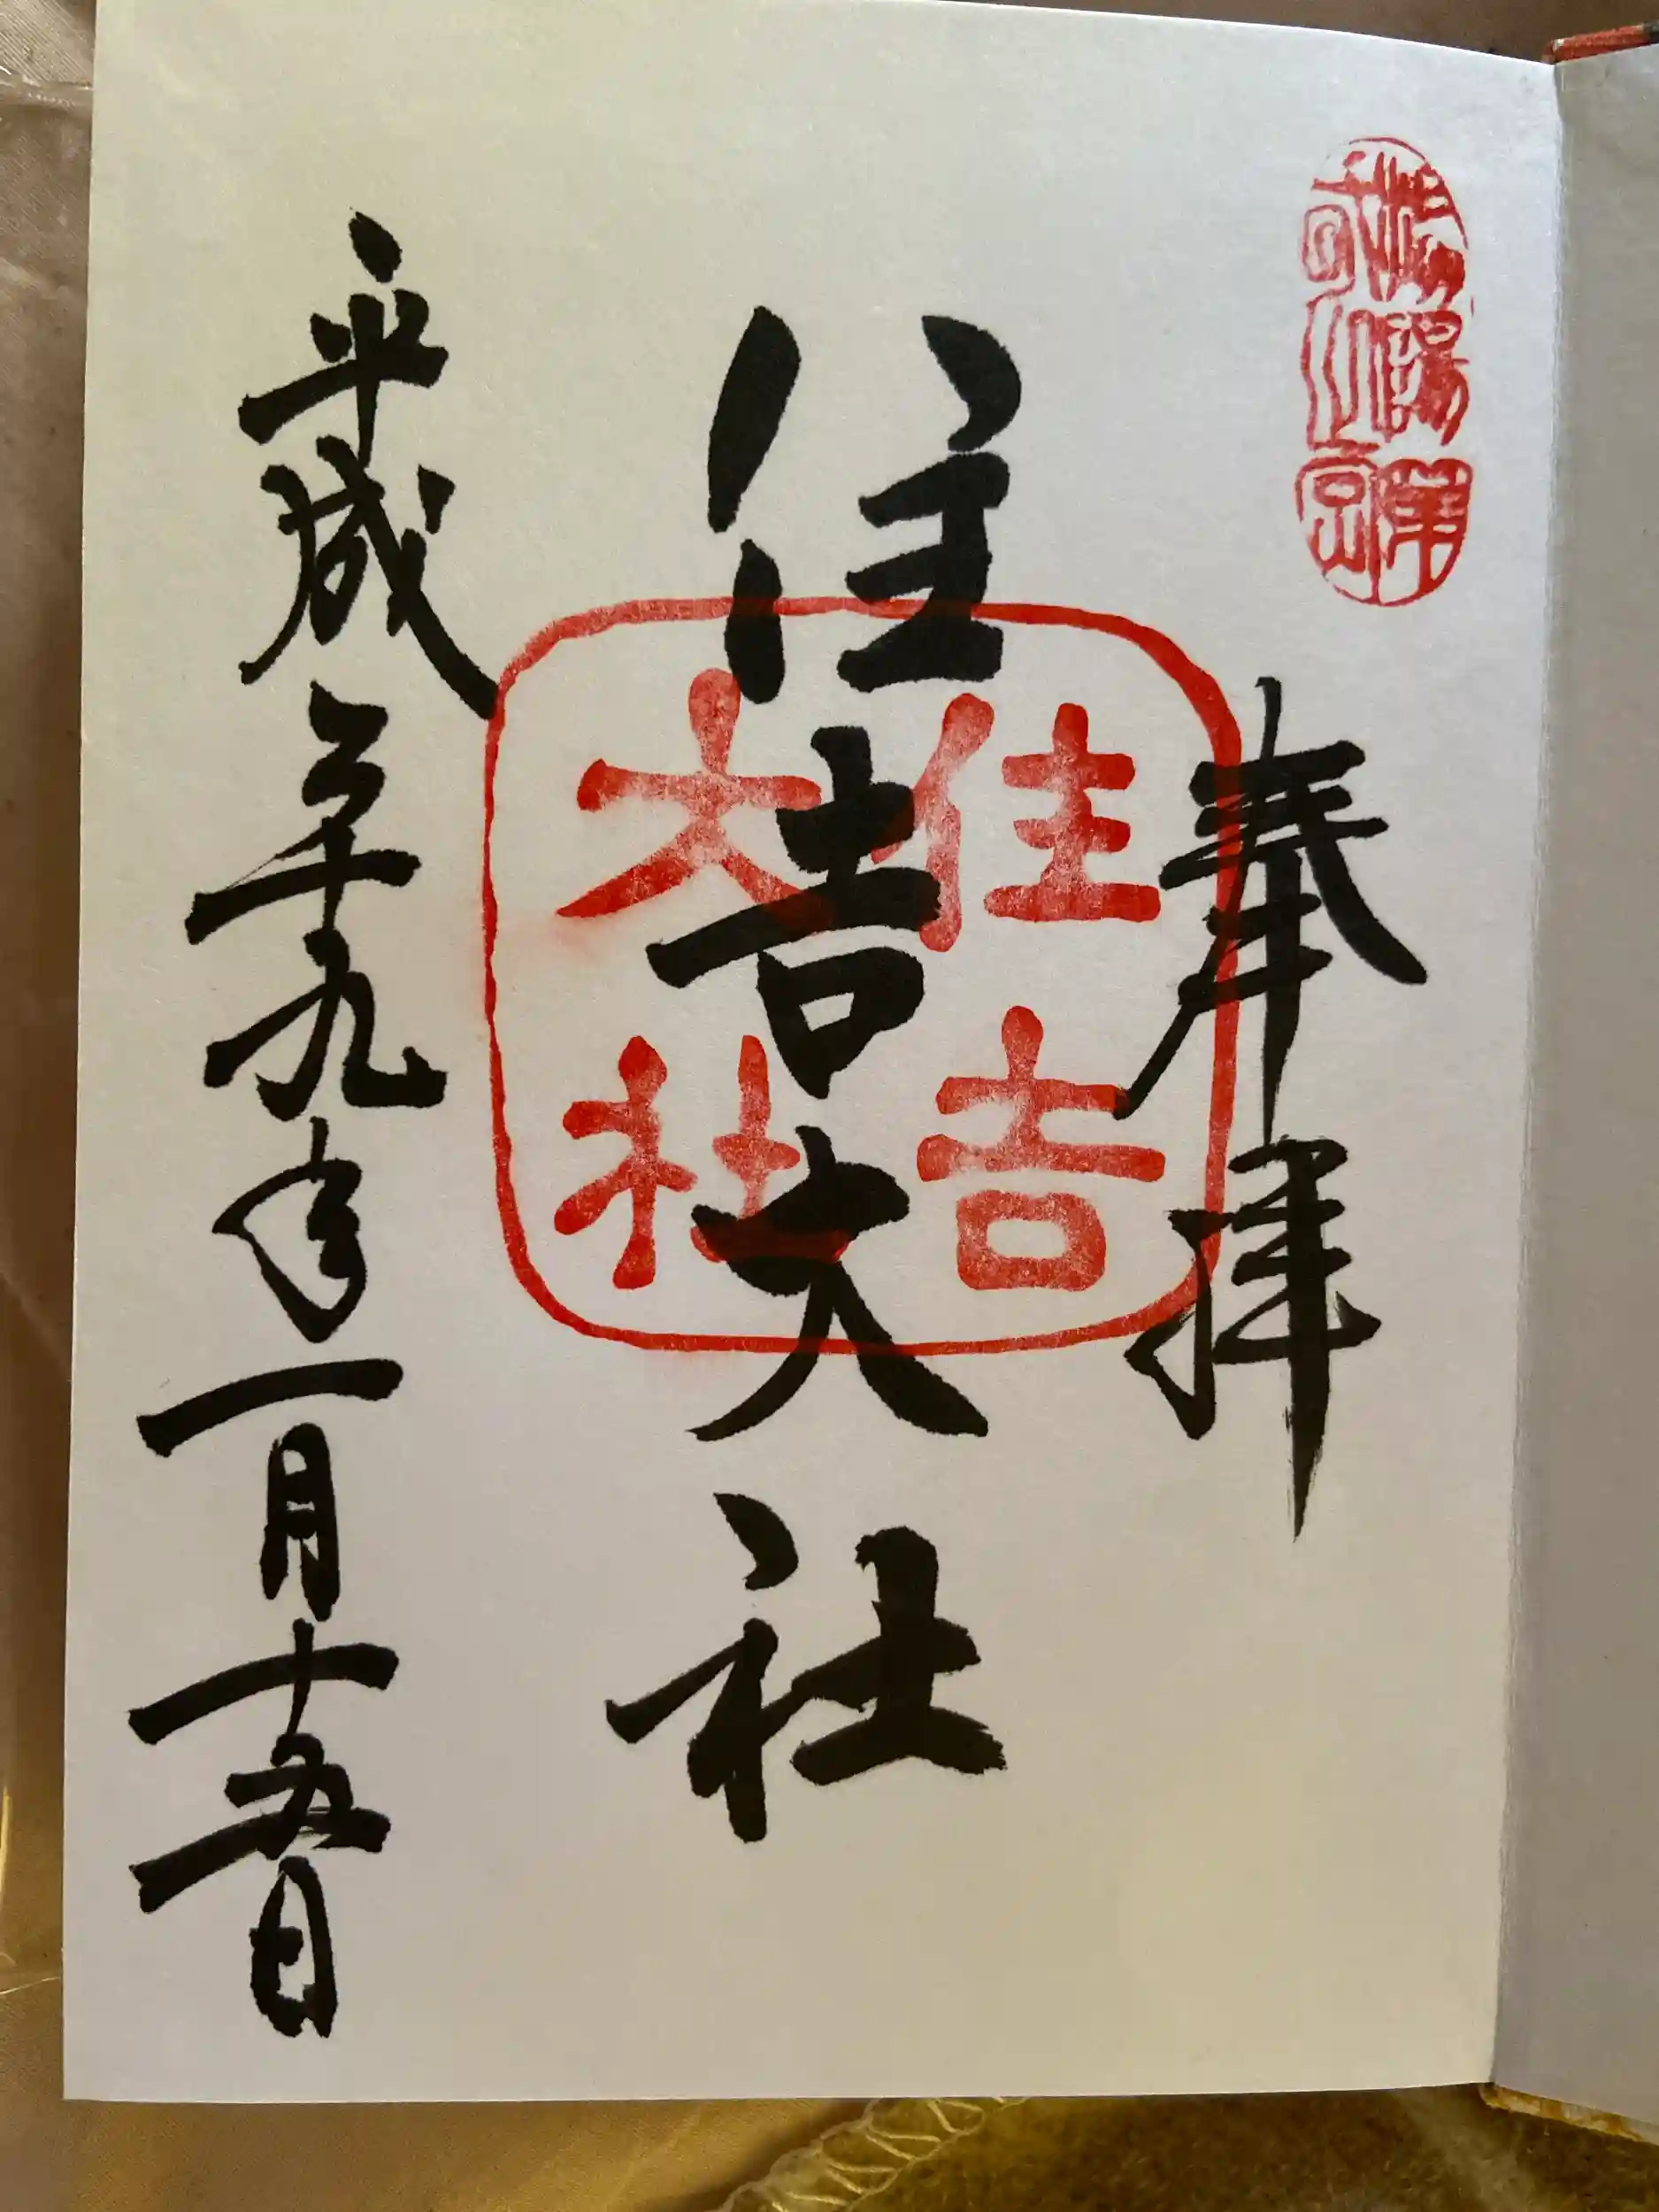 奉拝
住吉大社
住吉
大社
平成二十九年一月十五日